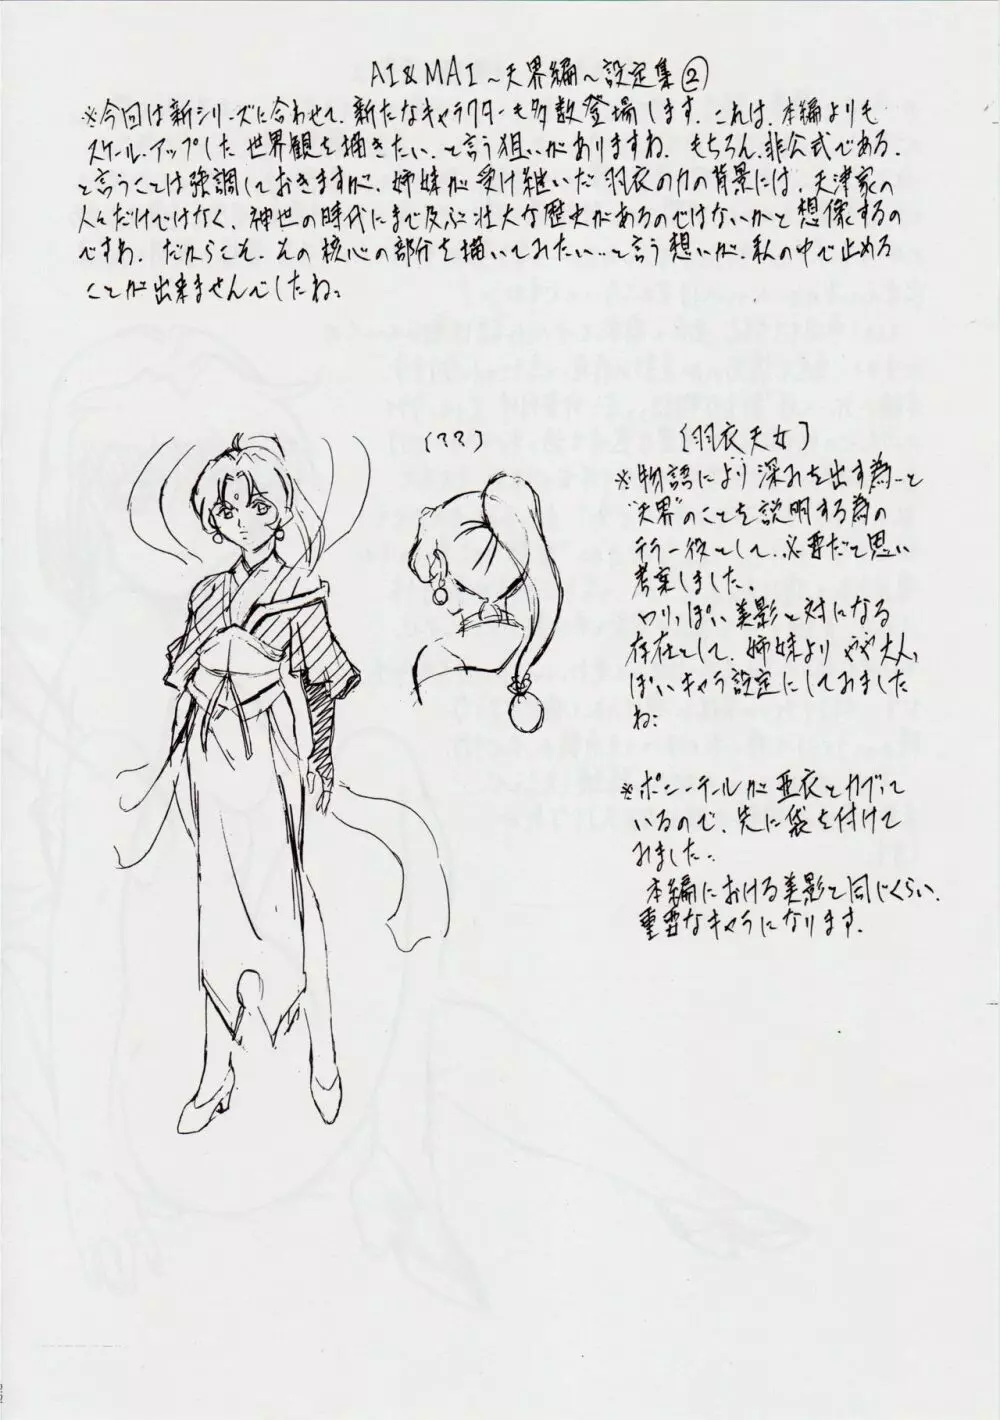 AI&MAI~天界編~設定集②
※今回は新シリーズに合わせて、新たなキャラクターも多数登場します。これは、本編よりも
スケール・アップした世界観を描きたい、と言う狙いがありますね。もちろん、非公式である。
と言うことは強調しておきますが、姉妹が受け継いだ羽衣の力の背景には、天津家の
人々だけではなく、神世の時代にまで及ぶ壮大な歴史があるのではないかと想像するの
ですね。だからこそ、その核心の部分を描いてみたい…と言う想いが、私の中で止める
ことが出来ませんでしたね。
(??)
〔羽衣天女〕
※物語により深みを出す為…と
"天界"のことを説明する為の
テラー役として、必要だと思い
考案しました。
ロリっぽい美影と対になる
存在として、姉妹よりやや大人っ
ぽいキャラ設定にしてみました
ね。
※ポニーテールが亜衣とカブって
いるので、先に袋を付けて
みました。
本編における美影と同じくらい、
重要なキャラになります。